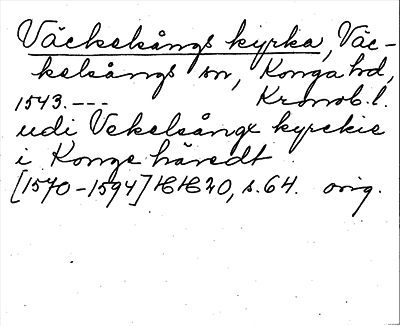 Väckelsångs kyrka, Väc-
kelsångs sn, Konga hd,
1543.--- Kronob. l.
udi Vekelsångx kyrckie
i Konge häredt
[1570-1594] HH 20, s. 64. orig.